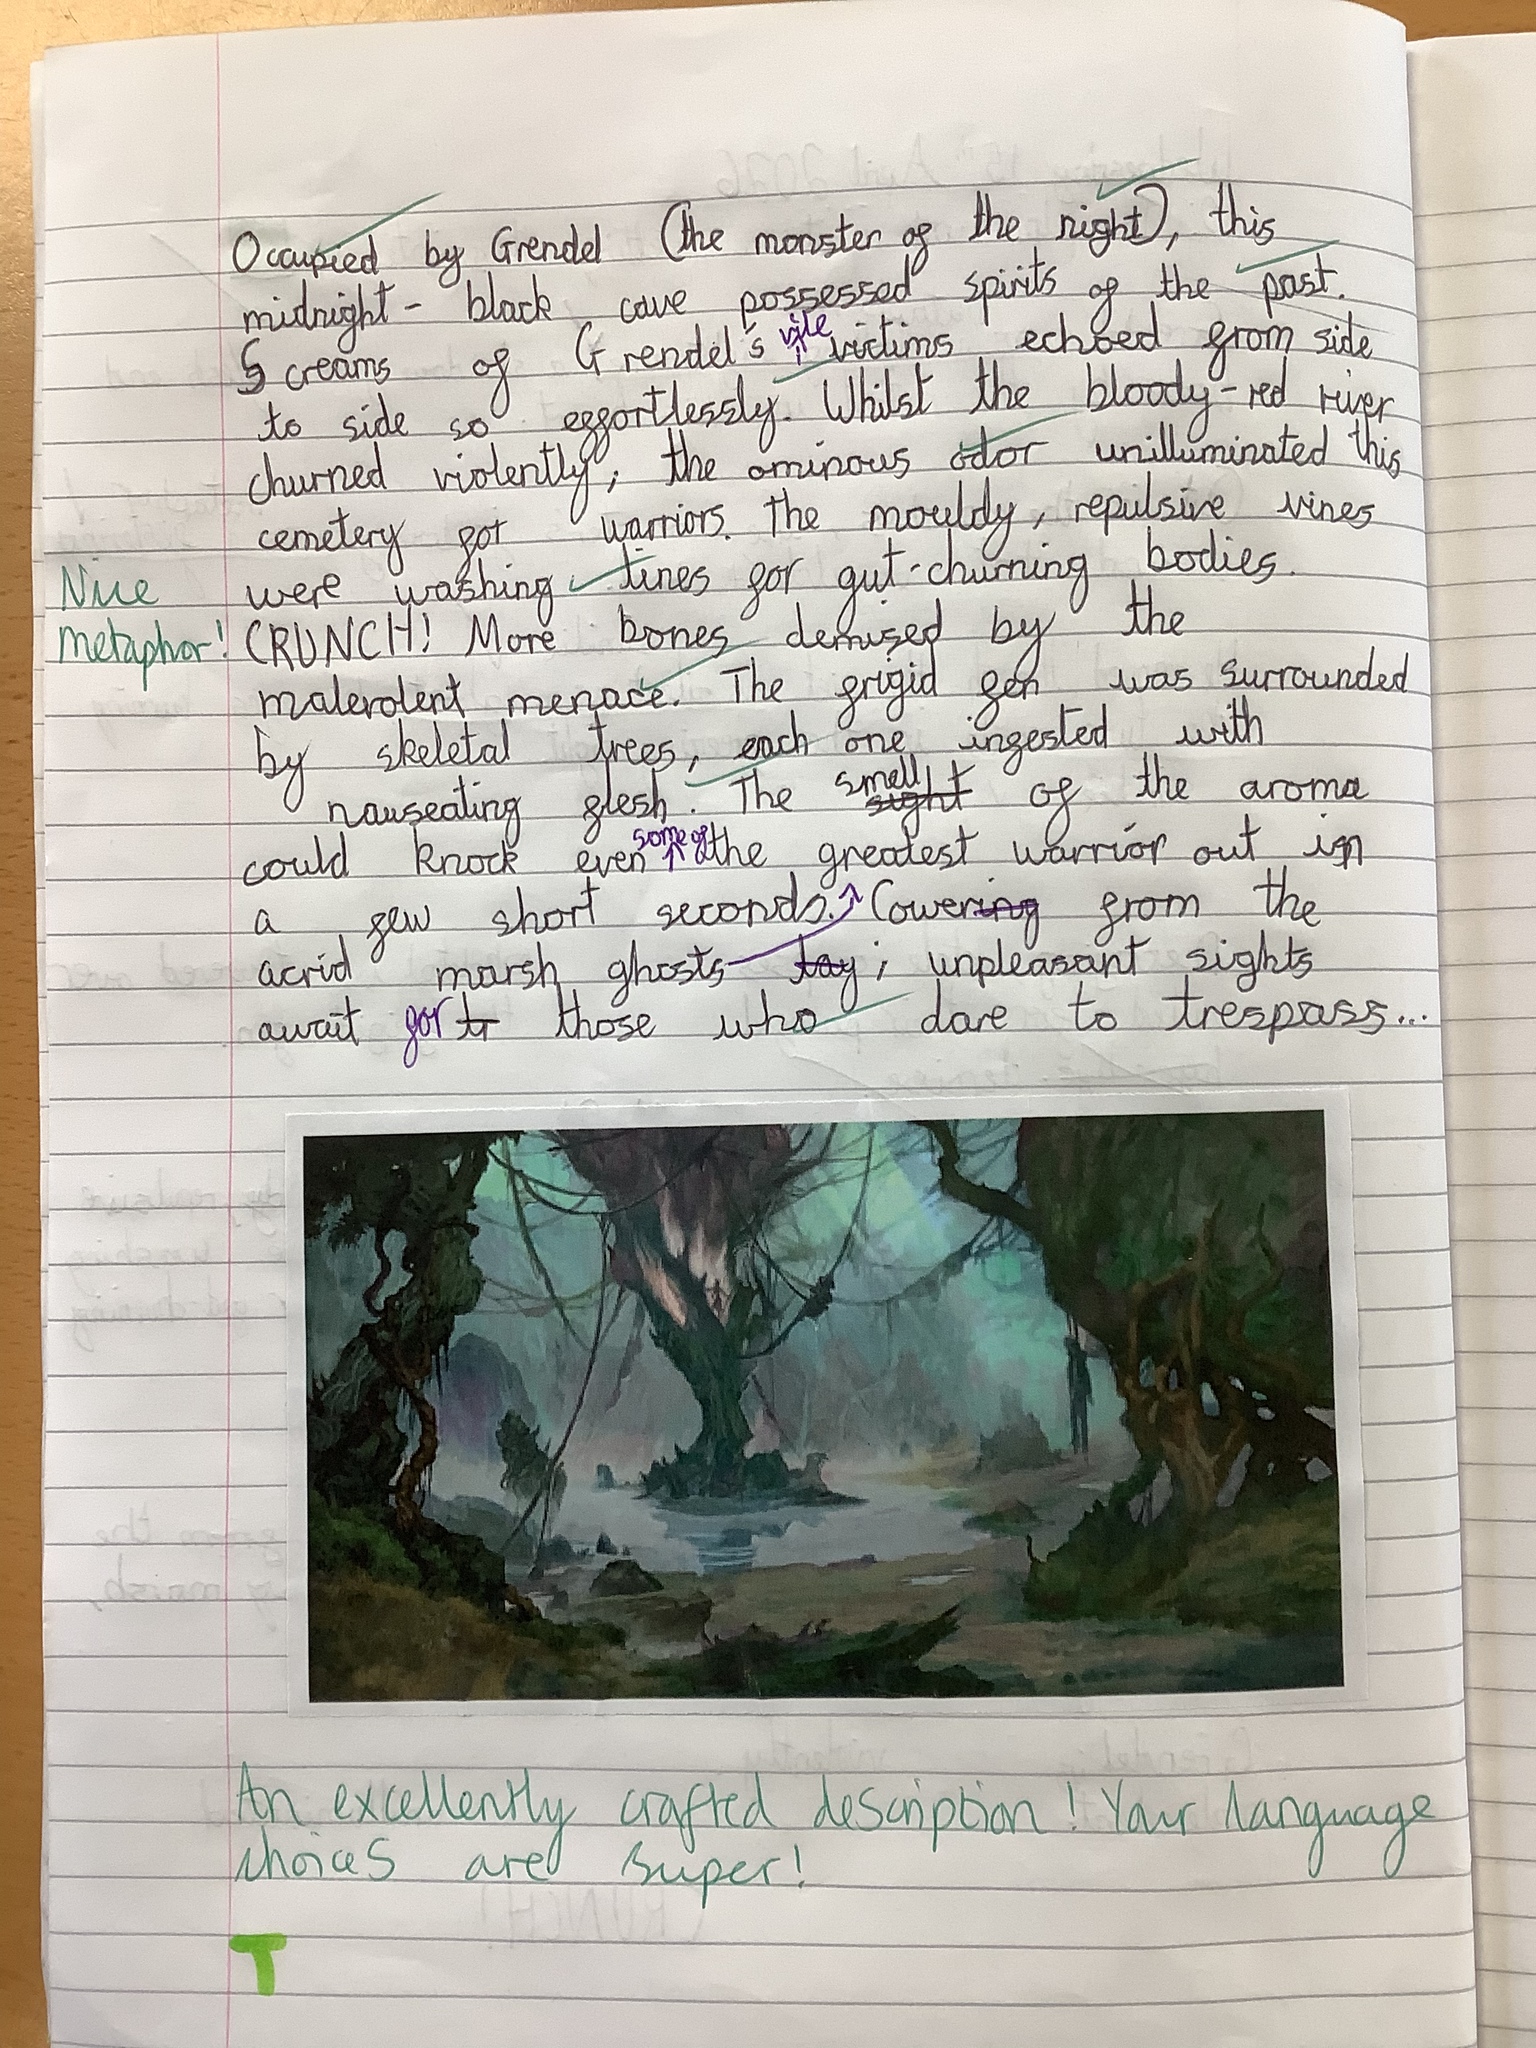 Occupied by Grendel (the monster of the night), this
midnight- black cave possessed spirits of the past.
Screams of Grendel's vile victims echoed from side
to side so effortlessly. Whilst the bloody-red river
churned violently; the ominous odor unilluminated this
cemetery for warriors. The mouldy, repulsive vines
Nice were washing lines for gut-churning bodies.
metaphor! CRUNCH! More bones demised by the
malevolent menace. The frigid fen was surrounded
by skeletal trees, each one ingested with
nauseating flesh. The smell sight of the aroma
could knock even some of the greatest warrior out in
a few short seconds. Cowering from the
acrid marsh ghosts tay; unpleasant sights
await for tr those who dare to trespass...
An excellently crafted description! Your language
choices are super!
T